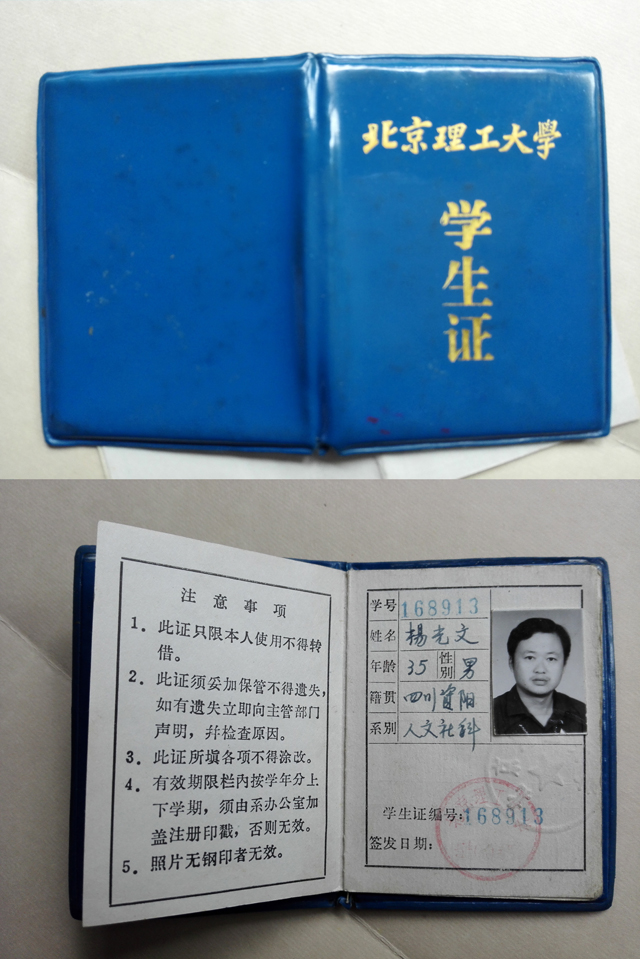 北京理工大學
学生证
注意事项
1. 此证只限本人使用不得转
借。
2. 此证须妥加保管不得遗失,
如有遗失立即向主管部门
声明,并检查原因。
3. 此证所填各项不得涂改。
4. 有效期限栏内按学年分上
下学期,须由系办公室加
盖注册印戳,否则无效。
5. 照片无钢印者无效。
学号 168913
姓名 楊光文
年龄 35 性别 男
籍贯 四川資阳
系别 人文社科
学生证编号:168913
签发日期: